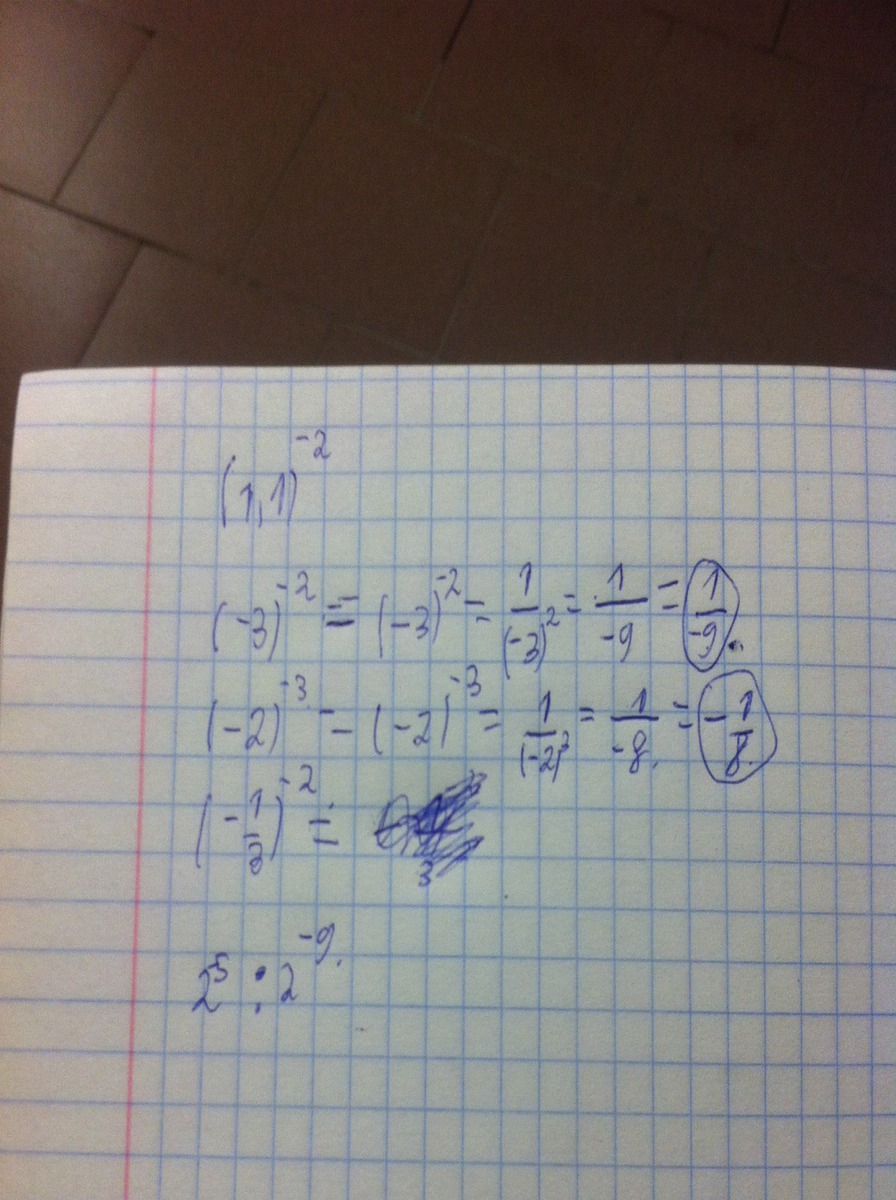 (1,1)^-2
(-3)^-2 = (-3)^-2 = 1/(-3)^2 = 1/-9 = 1/-9.
(-2)^-3 = (-2)^-3 = 1/(-2)^3 = 1/-8. = -1/8.
(-1/3)^-2 =
2^5 : 2^-9.